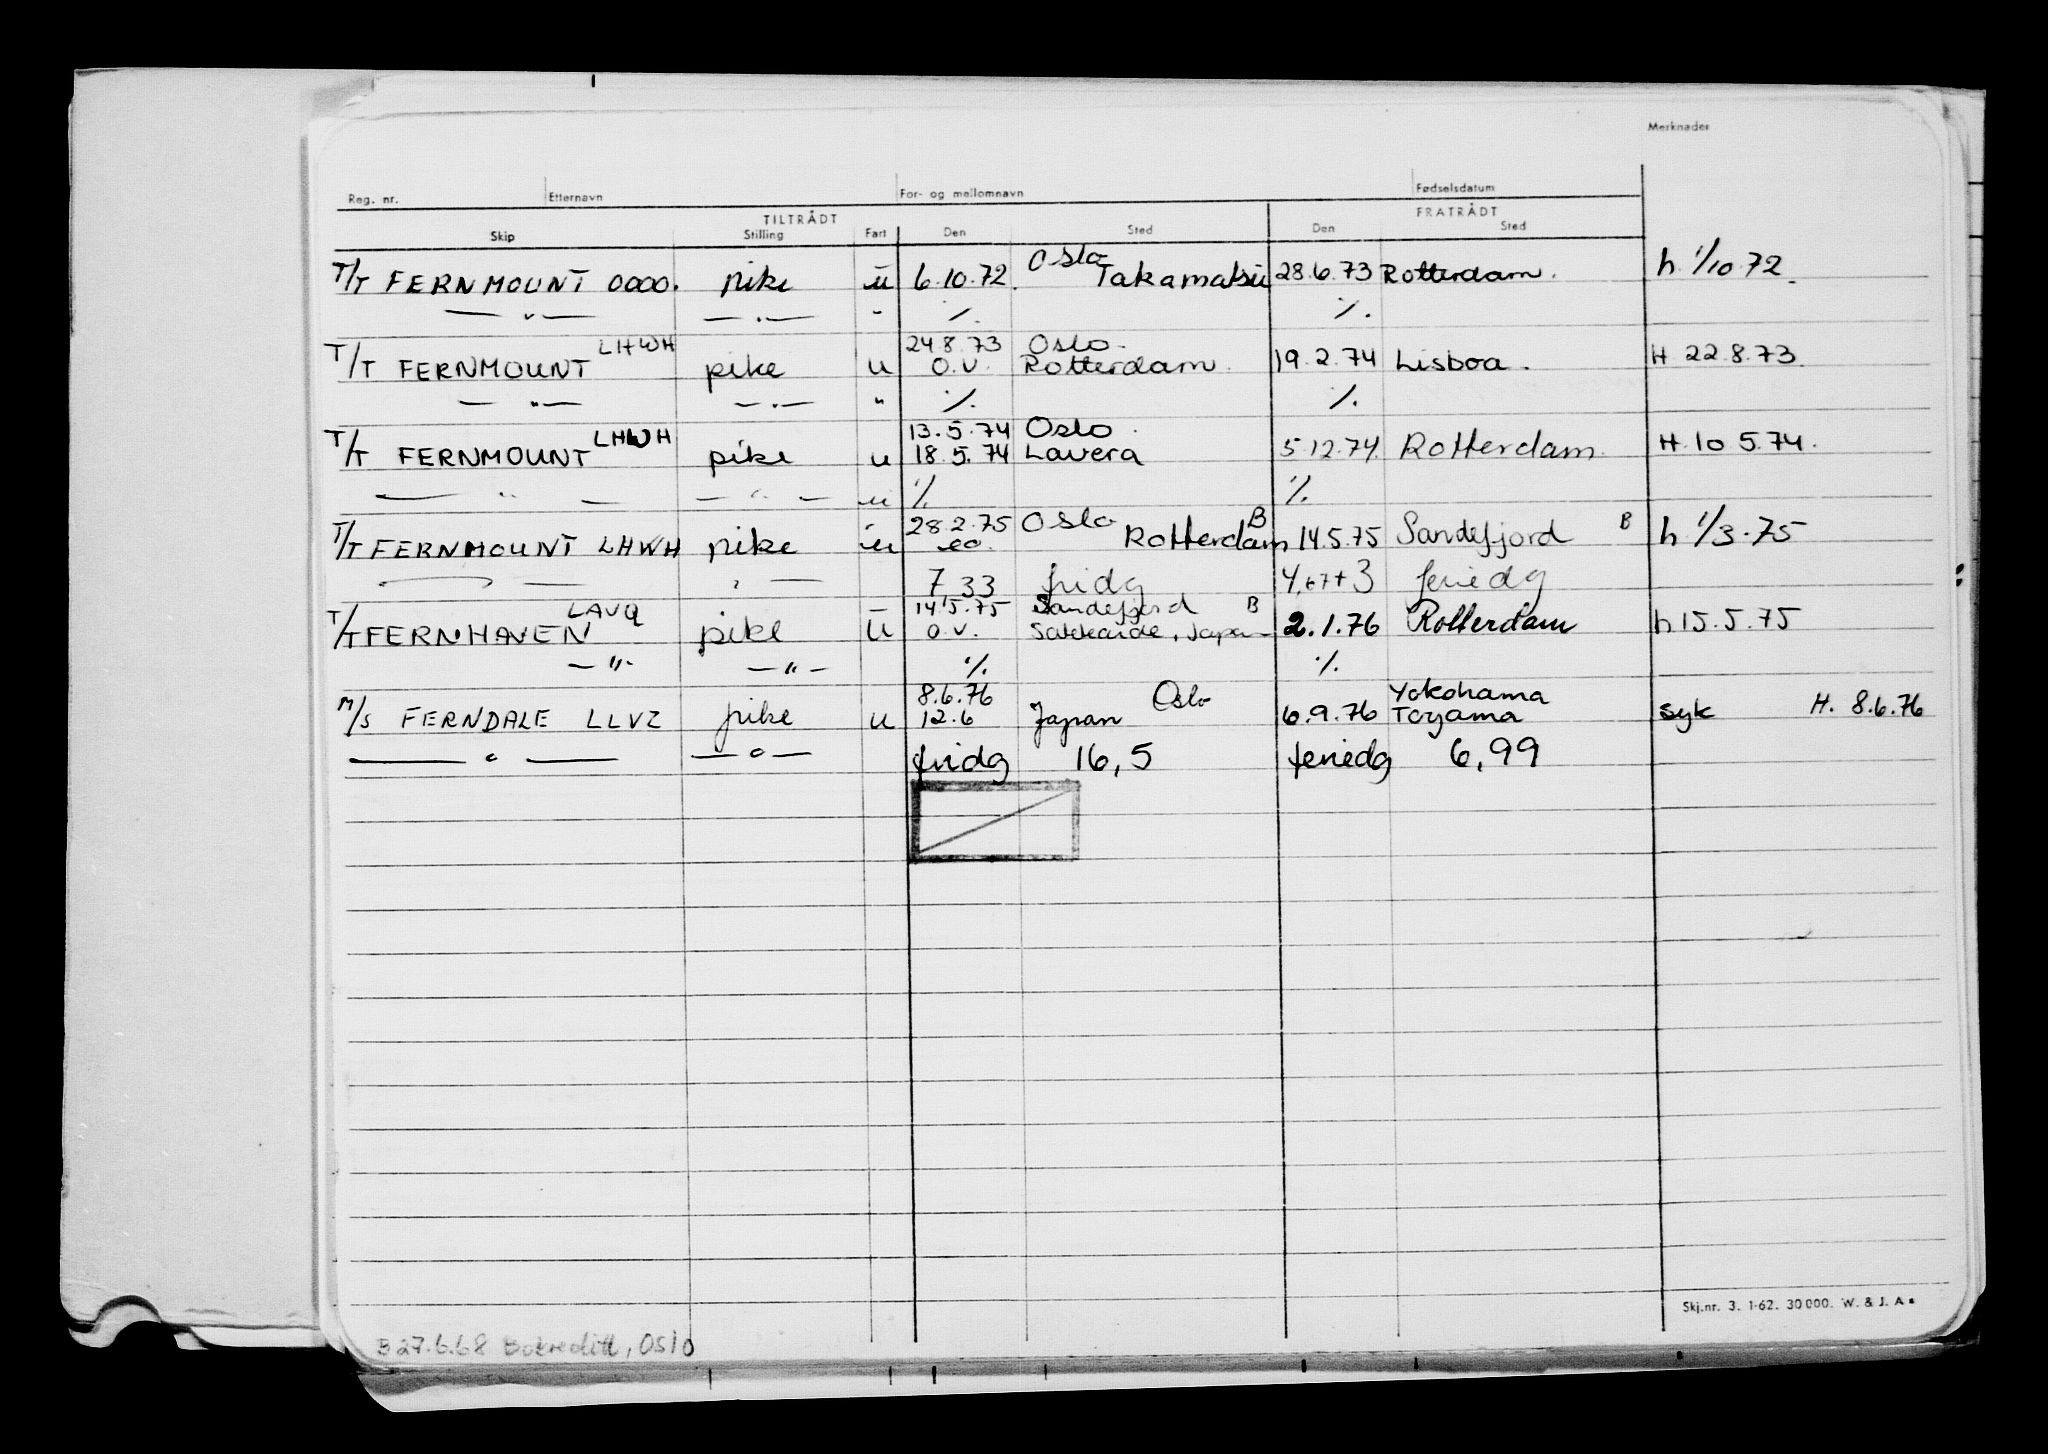 Merknader
Reg. nr. Etternavn For- og mellomnavn Fødselsdatum
TILTRÅDT FRATRÅDT
Skip Stilling Fart Den Sted Den Sted
Oslo
T/T FERNMOUNT 0000. pike u 6.10.72. Takamatsu 28.6.73 Rotterdam. h. 1/10 72.
— " — — " — " %. %.
LHWH 24.8.73 Oslo.
T/T FERNMOUNT pike u O.V. Rotterdam. 19.2.74 Lisboa. H 22.8.73.
— " — — " — " %. %.
LHWH 13.5.74 Oslo.
T/T FERNMOUNT pike u 18.5.74 Lavera 5.12.74. Rotterdam. H. 10 5.74.
— " — — " — u %. %.
28.2.75 Oslo B B
T/T FERNMOUNT LHWH pike u Rotterdam 14.5.75 Sandefjord h 1/3.75
— " — " — 7 33 fridg 4,67+3 feriedg
LAVQ 14.5.75 Sandefjord B
T/T FERNHAVEN pike u o.v. Japan 2.1.76 Rotterdam h 15.5.75
— " — — " — %. %.
8.6.76 Oslo Yokohama
M/S FERNDALE LLVZ pike u 12.6 Japan 6.9.76 Toyama syk H. 8.6.76
— " — — " — fridg 16,5 feriedg 6,99
Skj.nr. 3. 1-62. 30 000. W. & J. A
B 27.6.68 Oslo